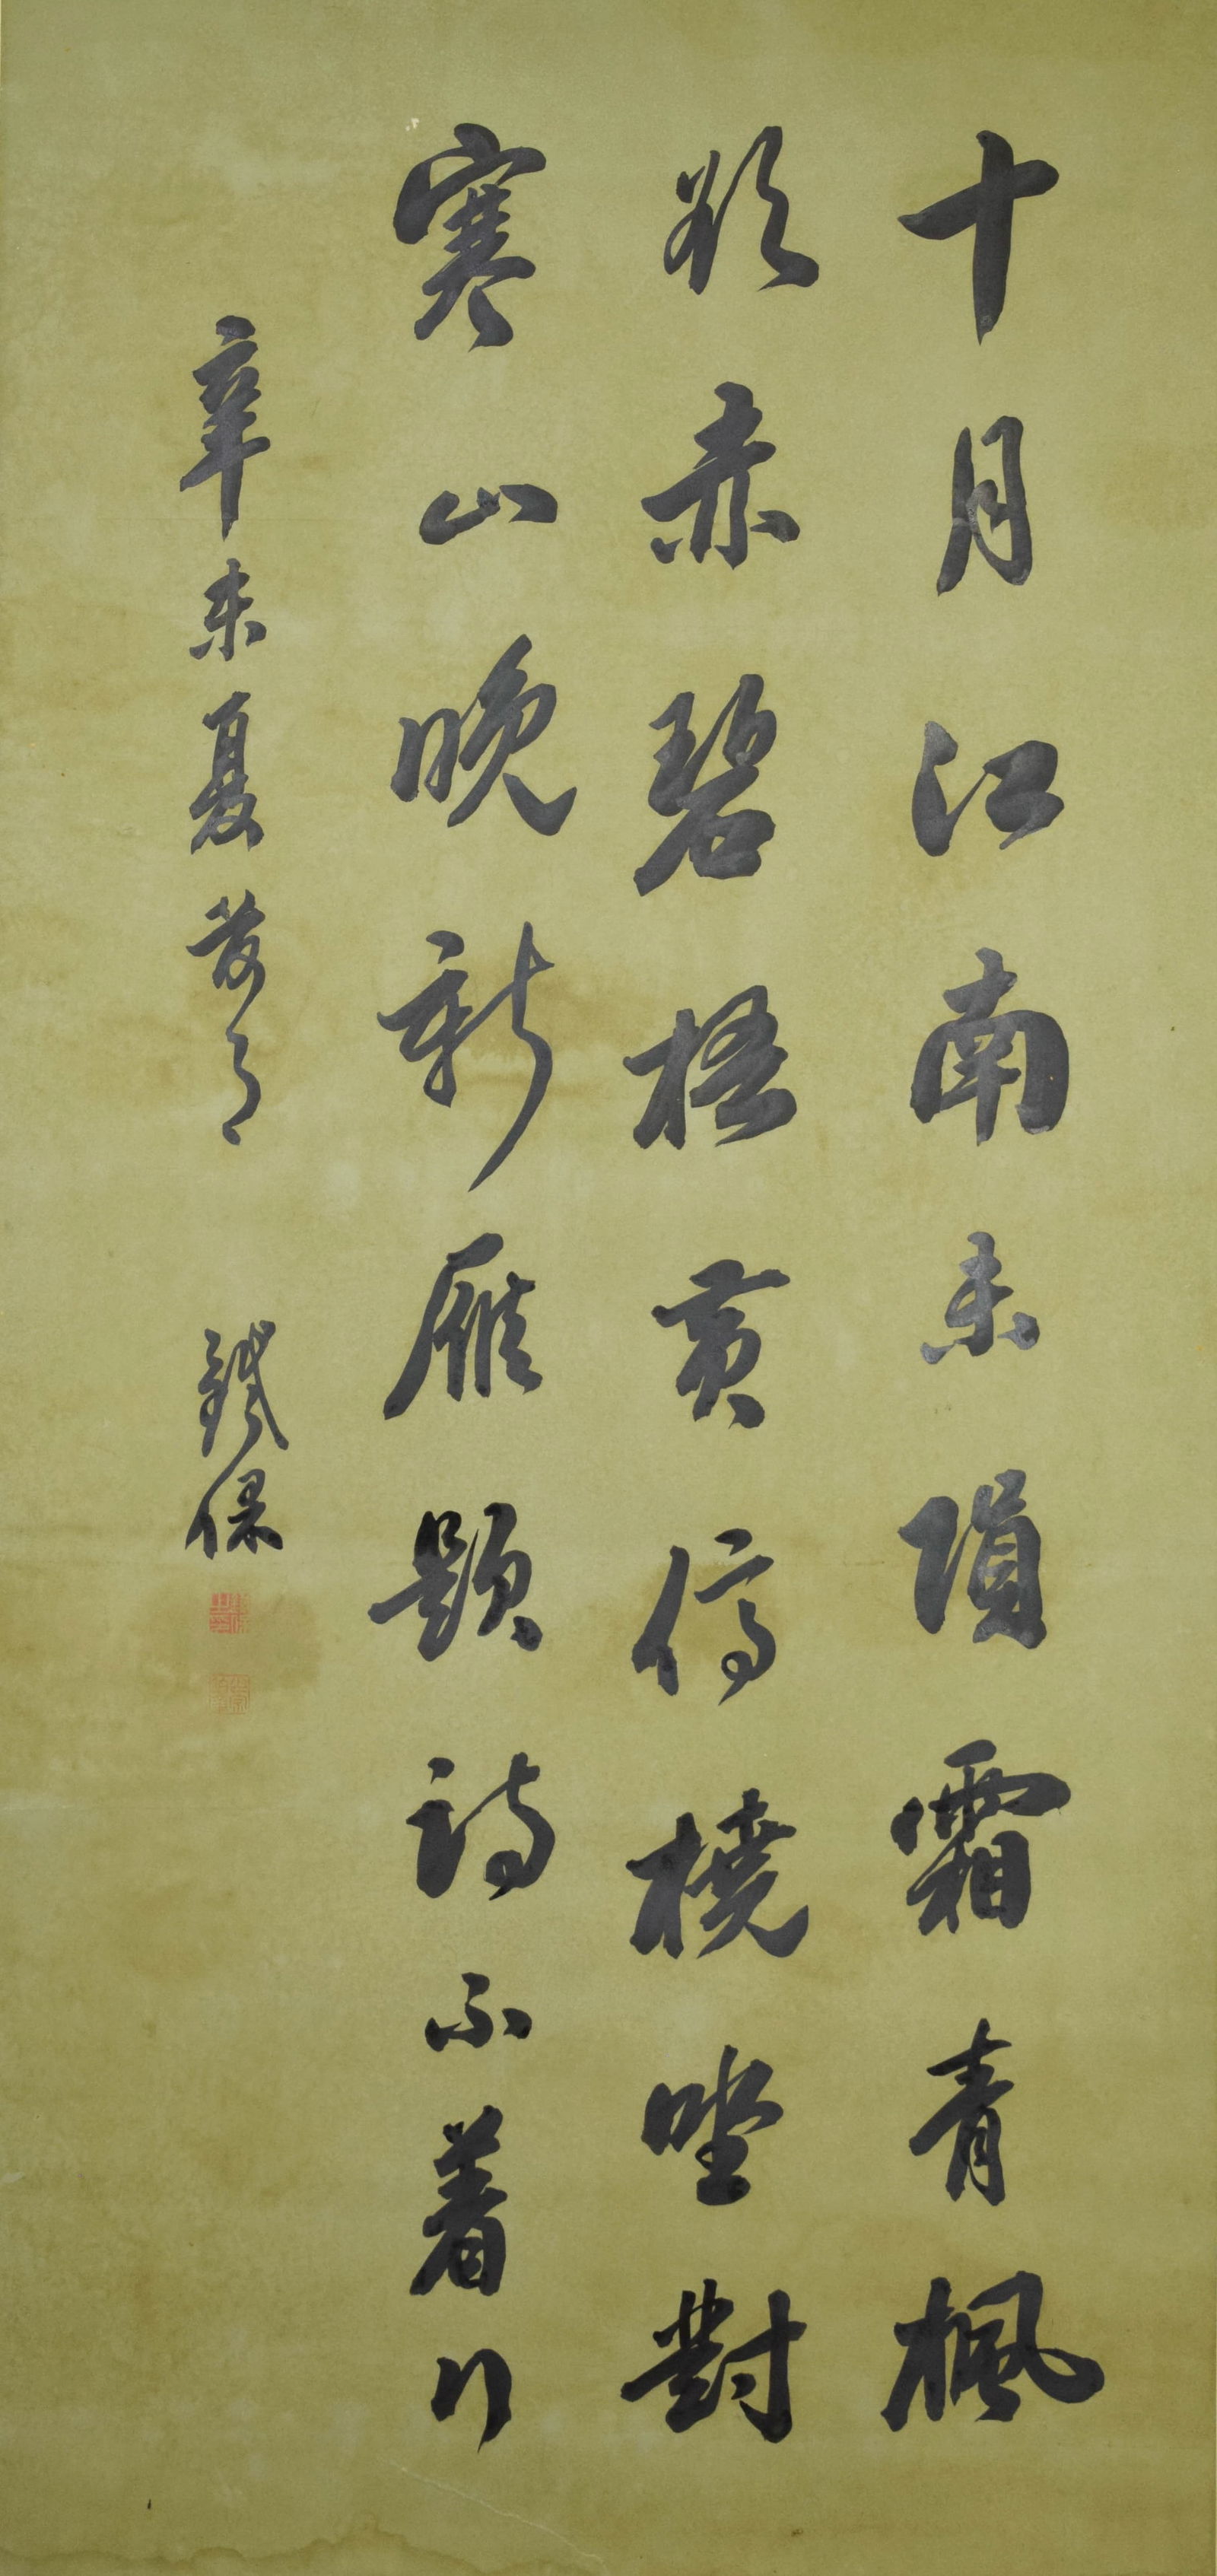 十月江南未隕霜青楓
欲赤碧梧黃停橈坐對
寒山晚新雁題詩小着行
辛未夏蒼了 鐵保